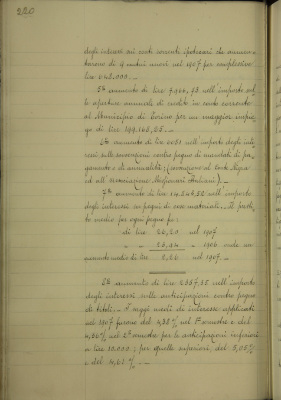 220
degli interessi sui conti correnti ipotecari che aumen
tarono di 9 mutui nuovi nel 1907 per complessive
lire 625.000. —
5° aumento di lire 7.966,93 nell'importo sul
le aperture annuali di credito in conto corrente
al Municipio di Torino per un maggior impie
go di lire 199.165,25. —
6° aumento di lire 6051 nell'importo degli inte
ressi sulle sovvenzioni contro pegno di mandati di pa
gamento e di annualità; (sovvenzione al conte
ed all'Associazione Italiana).
7° aumento di lire 14.526,52 nell'importo
degli interessi sui pegni di cose materiali. — Il presti
to medio per ogni pegno fu:
di lire 26,20 nel 1907
" " 23,94 " 1906 onde un
aumento medio di lire 2,26 nel 1907. —
8° aumento di lire 2357,25 nell'importo
degli interessi sulle anticipazioni contro pegno
di titoli. — I saggi medii di interesse applicati
nel 1907 furono del 4,38% nel 1° semestre e del
4,86% nel 2° semestre per le anticipazioni inferiori
a lire 10.000; per quelle superiori, del 5,05%
e del 4,65%. —